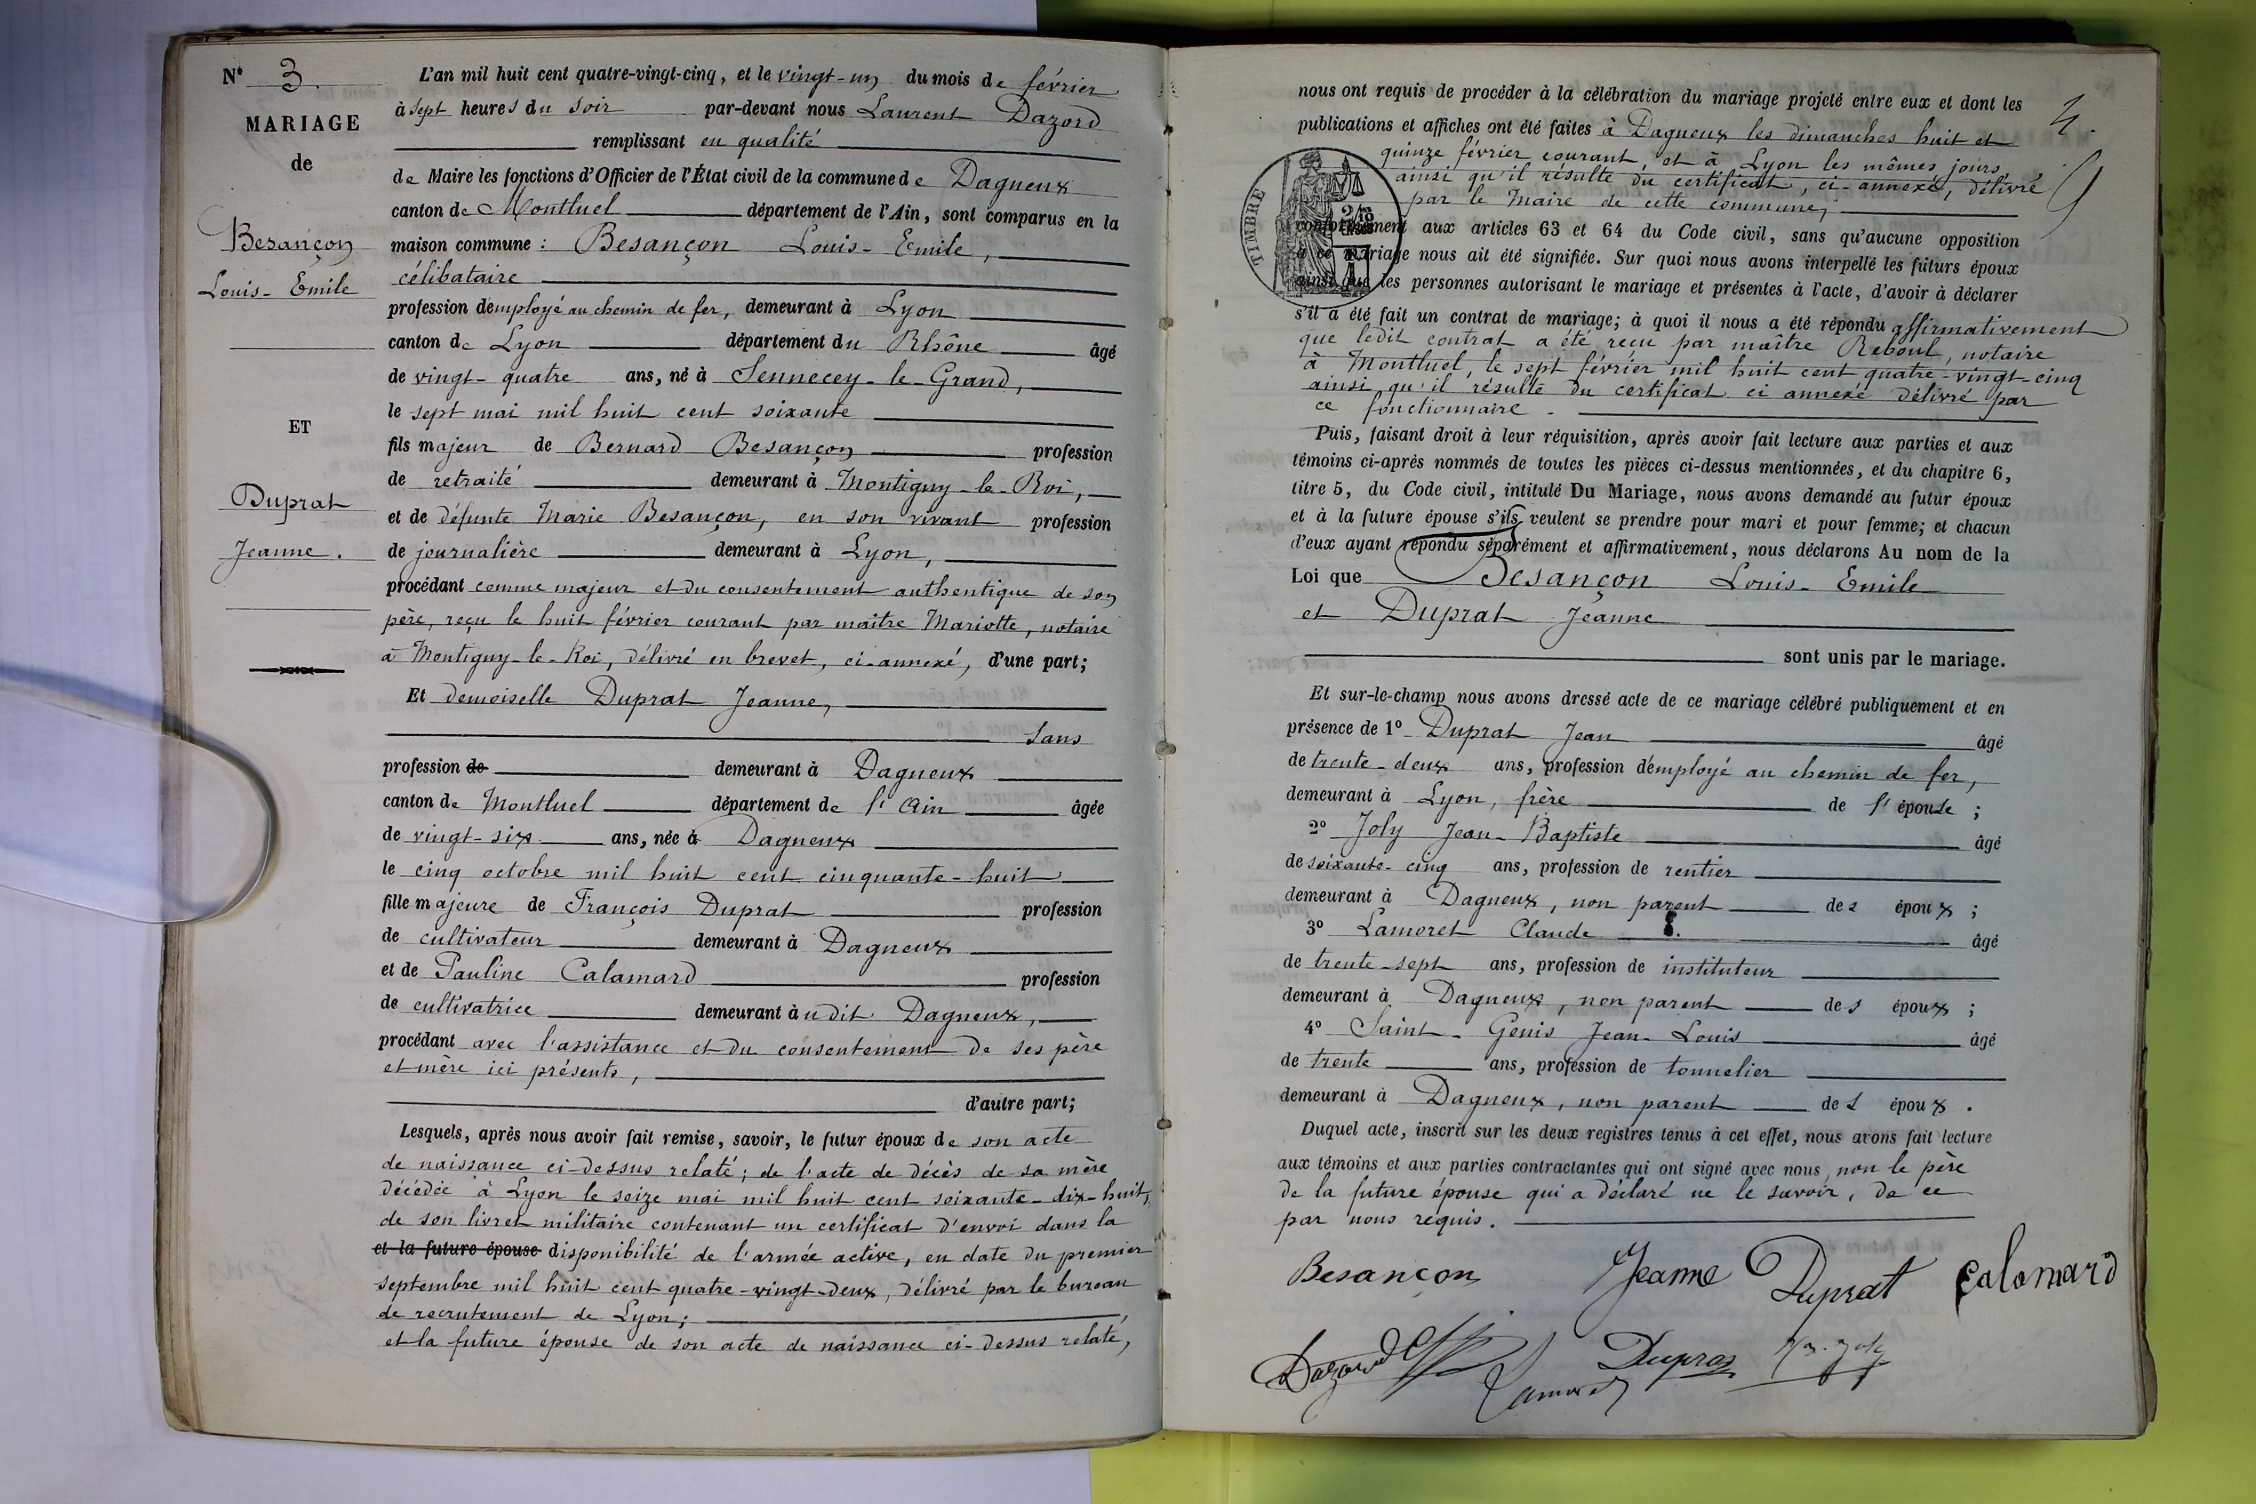 N° 3.
MARIAGE
de
Besançon
Louis-Emile
ET
Duprat
Jeanne.
L'an mil huit cent quatre-vingt-cinq, et le vingt-un du mois de février
à sept heures du soir par-devant nous Laurent Dazord
remplissant en qualité
de Maire les fonctions d'Officier de l'État civil de la commune de Dagneux
canton de Montluel département de l'Ain, sont comparus en la
maison commune : Besançon Louis-Emile,
célibataire
profession d'employé au chemin de fer, demeurant à Lyon
canton de Lyon département du Rhône âgé
de vingt-quatre ans, né à Sennecey-le-Grand,
le sept mai mil huit cent soixante
fils majeur de Bernard Besançon profession
de retraité demeurant à Montigny-le-Roi,
et de défunte Marie Besançon, en son vivant profession
de journalière demeurant à Lyon,
procédant comme majeur et du consentement authentique de son
père, reçu le huit février courant par maître Mariotte, notaire
à Montigny-le-Roi, délivré en brevet, ci-annexé, d'une part;
Et demoiselle Duprat Jeanne,
sans
profession de demeurant à Dagneux
canton de Montluel département de l'Ain âgée
de vingt-six ans, née à Dagneux
le cinq octobre mil huit cent cinquante-huit
fille majeure de François Duprat profession
de cultivateur demeurant à Dagneux
et de Pauline Calamard profession
de cultivatrice demeurant audit Dagneux,
procédant avec l'assistance et du consentement de ses père
et mère ici présents,
d'autre part;
Lesquels, après nous avoir fait remise, savoir, le futur époux de son acte
de naissance ci-dessus relaté; de l'acte de décès de sa mère
décédée à Lyon le seize mai mil huit cent soixante-dix-huit,
de son livret militaire contenant un certificat d'envoi dans la
et la future épouse disponibilité de l'armée active, en date du premier
septembre mil huit cent quatre-vingt-deux, délivré par le bureau
de recrutement de Lyon;
et la future épouse de son acte de naissance ci-dessus relaté,
nous ont requis de procéder à la célébration du mariage projeté entre eux et dont les
publications et affiches ont été faites à Dagneux les dimanches huit et
quinze février courant, et à Lyon les mêmes jours,
ainsi qu'il résulte du certificat, ci-annexé, délivré
par le Maire de cette commune,
TIMBRE
conformément aux articles 63 et 64 du Code civil, sans qu'aucune opposition
à ce mariage nous ait été signifiée. Sur quoi nous avons interpellé les futurs époux
ainsi que les personnes autorisant le mariage et présentes à l'acte, d'avoir à déclarer
s'il a été fait un contrat de mariage; à quoi il nous a été répondu affirmativement
que ledit contrat a été reçu par maître Reboul, notaire
à Montluel, le sept février mil huit cent quatre-vingt-cinq
ainsi qu'il résulte du certificat ci annexé délivré par
ce fonctionnaire.
Puis, faisant droit à leur réquisition, après avoir fait lecture aux parties et aux
témoins ci-après nommés de toutes les pièces ci-dessus mentionnées, et du chapitre 6,
titre 5, du Code civil, intitulé Du Mariage, nous avons demandé au futur époux
et à la future épouse s'ils veulent se prendre pour mari et pour femme; et chacun
d'eux ayant répondu séparément et affirmativement, nous déclarons Au nom de la
Loi que Besançon Louis-Emile
et Duprat Jeanne
sont unis par le mariage.
Et sur-le-champ nous avons dressé acte de ce mariage célébré publiquement et en
présence de 1° Duprat Jean âgé
de trente-deux ans, profession d'employé au chemin de fer,
demeurant à Lyon, frère de l'épouse ;
2° Joly Jean-Baptiste âgé
de soixante-cinq ans, profession de rentier
demeurant à Dagneux, non parent des époux ;
3° Lamoret Claude âgé
de trente-sept ans, profession de instituteur
demeurant à Dagneux, non parent des époux ;
4° Saint-Genis Jean-Louis âgé
de trente ans, profession de tonnelier
demeurant à Dagneux, non parent des époux.
Duquel acte, inscrit sur les deux registres tenus à cet effet, nous avons fait lecture
aux témoins et aux parties contractantes qui ont signé avec nous, non le père
de la future épouse qui a déclaré ne le savoir, de ce
par nous requis.
Besançon Jeanne Duprat Calamard
Dazord Lamoret Duprat Joly